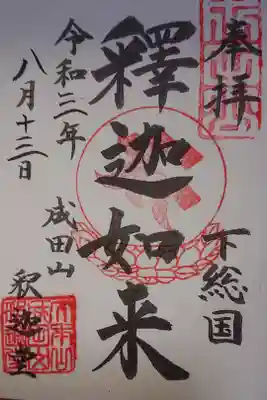 奉拝
下総国
釋迦如来
成田山
釈迦堂
令和三年
八月十三日